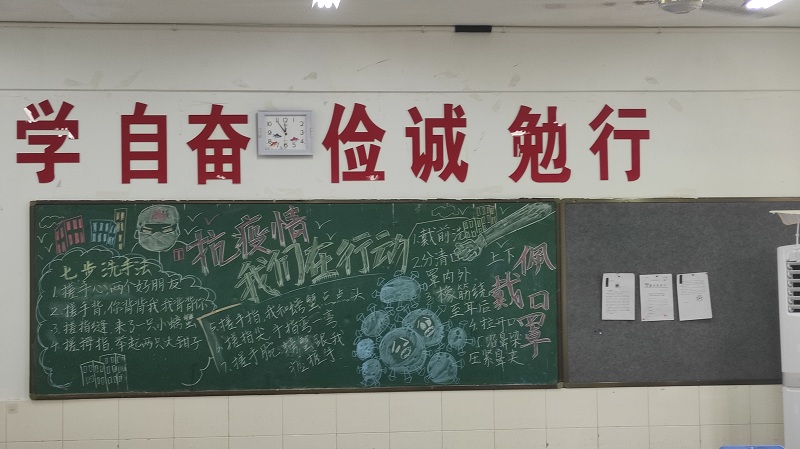 学 自奋 俭诚 勉行
抗疫情
我们在行动
七步洗手法
1.搓手心,两个好朋友
2.搓手背,你背背我我背背你
3.搓指缝 来了一只小螃蟹
4.搓拇指 举起两只大钳子
5.搓手指,我和螃蟹点点头
6.搓指尖 手指弯一弯
7.搓手腕,螃蟹跟我
握握手
佩戴口罩
1.戴前洗
2.分清 上下
罩内外
3.橡筋绕
至耳后
4.拉开口
罩
压紧鼻夹